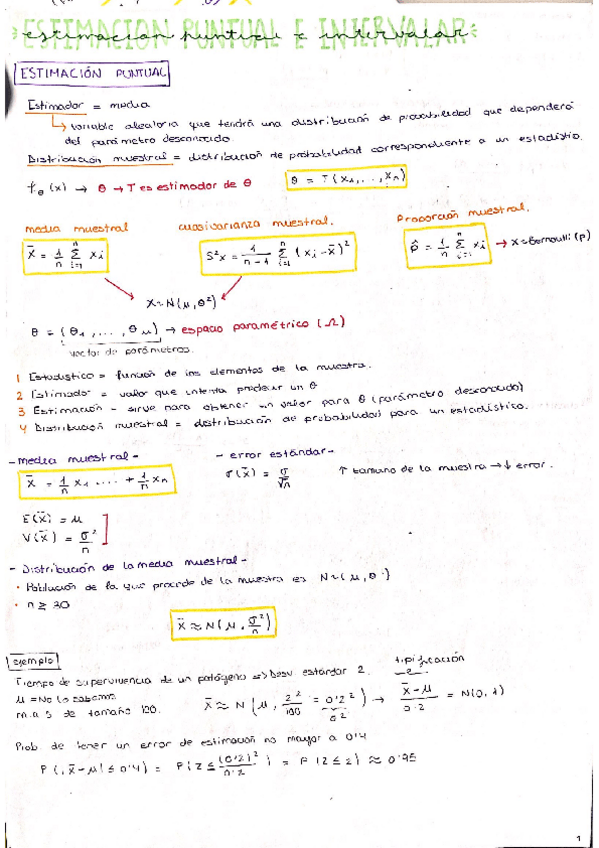 ESTIMACIÓN PUNTUAL E INTERVALAR
ESTIMACIÓN PUNTUAL
Estimador = media
↳ variable aleatoria que tendrá una distribución de probabilidad que dependerá
del parámetro desconocido.
Distribución muestral = distribución de probabilidad correspondiente a un estadístio.
f_θ (x) → θ → T es estimador de θ
θ = T(x₁,...,xₙ)
media muestral
cuasivarianza muestral.
Proporción muestral.
x̄ = 1/n Σ_{i=1}^{n} xᵢ
S²x = 1/(n-1) Σ_{i=1}^{n} (xᵢ - x̄)²
p̂ = 1/n Σ_{i=1}^{n} xᵢ → x≈Bernoulli (p)
x~N(μ, θ²)
θ = (θ₁, ..., θ_μ) → espacio paramétrico (Ω)
vector de parámetros.
1 Estadístico = función de los elementos de la muestra.
2 Estimador = valor que intenta predecir un θ
3 Estimación - sirve para obtener un valor para θ (parámetro desconocido)
4 Distribución muestral = distribución de probabilidad para un estadístico.
- media muestral -
- error estándar -
x̄ = 1/n x₁ ... + 1/n xₙ
σ(x̄) = σ/√n
↑ tamaño de la muestra → ↓ error.
E(x̄) = μ
V(x̄) = σ²/n
- Distribución de la media muestral -
· Población de la que procede de la muestra es N~(μ, θ )
· n ≥ 30
x̄ ≈ N(μ, σ²/n)
ejemplo
Tiempo de supervivencia de un patógeno => Desv. estándar 2.
tipificación
μ = No lo sabemos
m.a.s de tamaño 100.
x̄ ≈ N (μ, 2²/100 = 0'2²) → (x̄ - μ)/0'2 = N(0, 1)
σ²
Prob. de tener un error de estimación no mayor a 0'4
P(|x̄ - μ| ≤ 0'4) = P(Z ≤ (0'2)²/0'2) = P(Z ≤ 2) ≈ 0'95
1